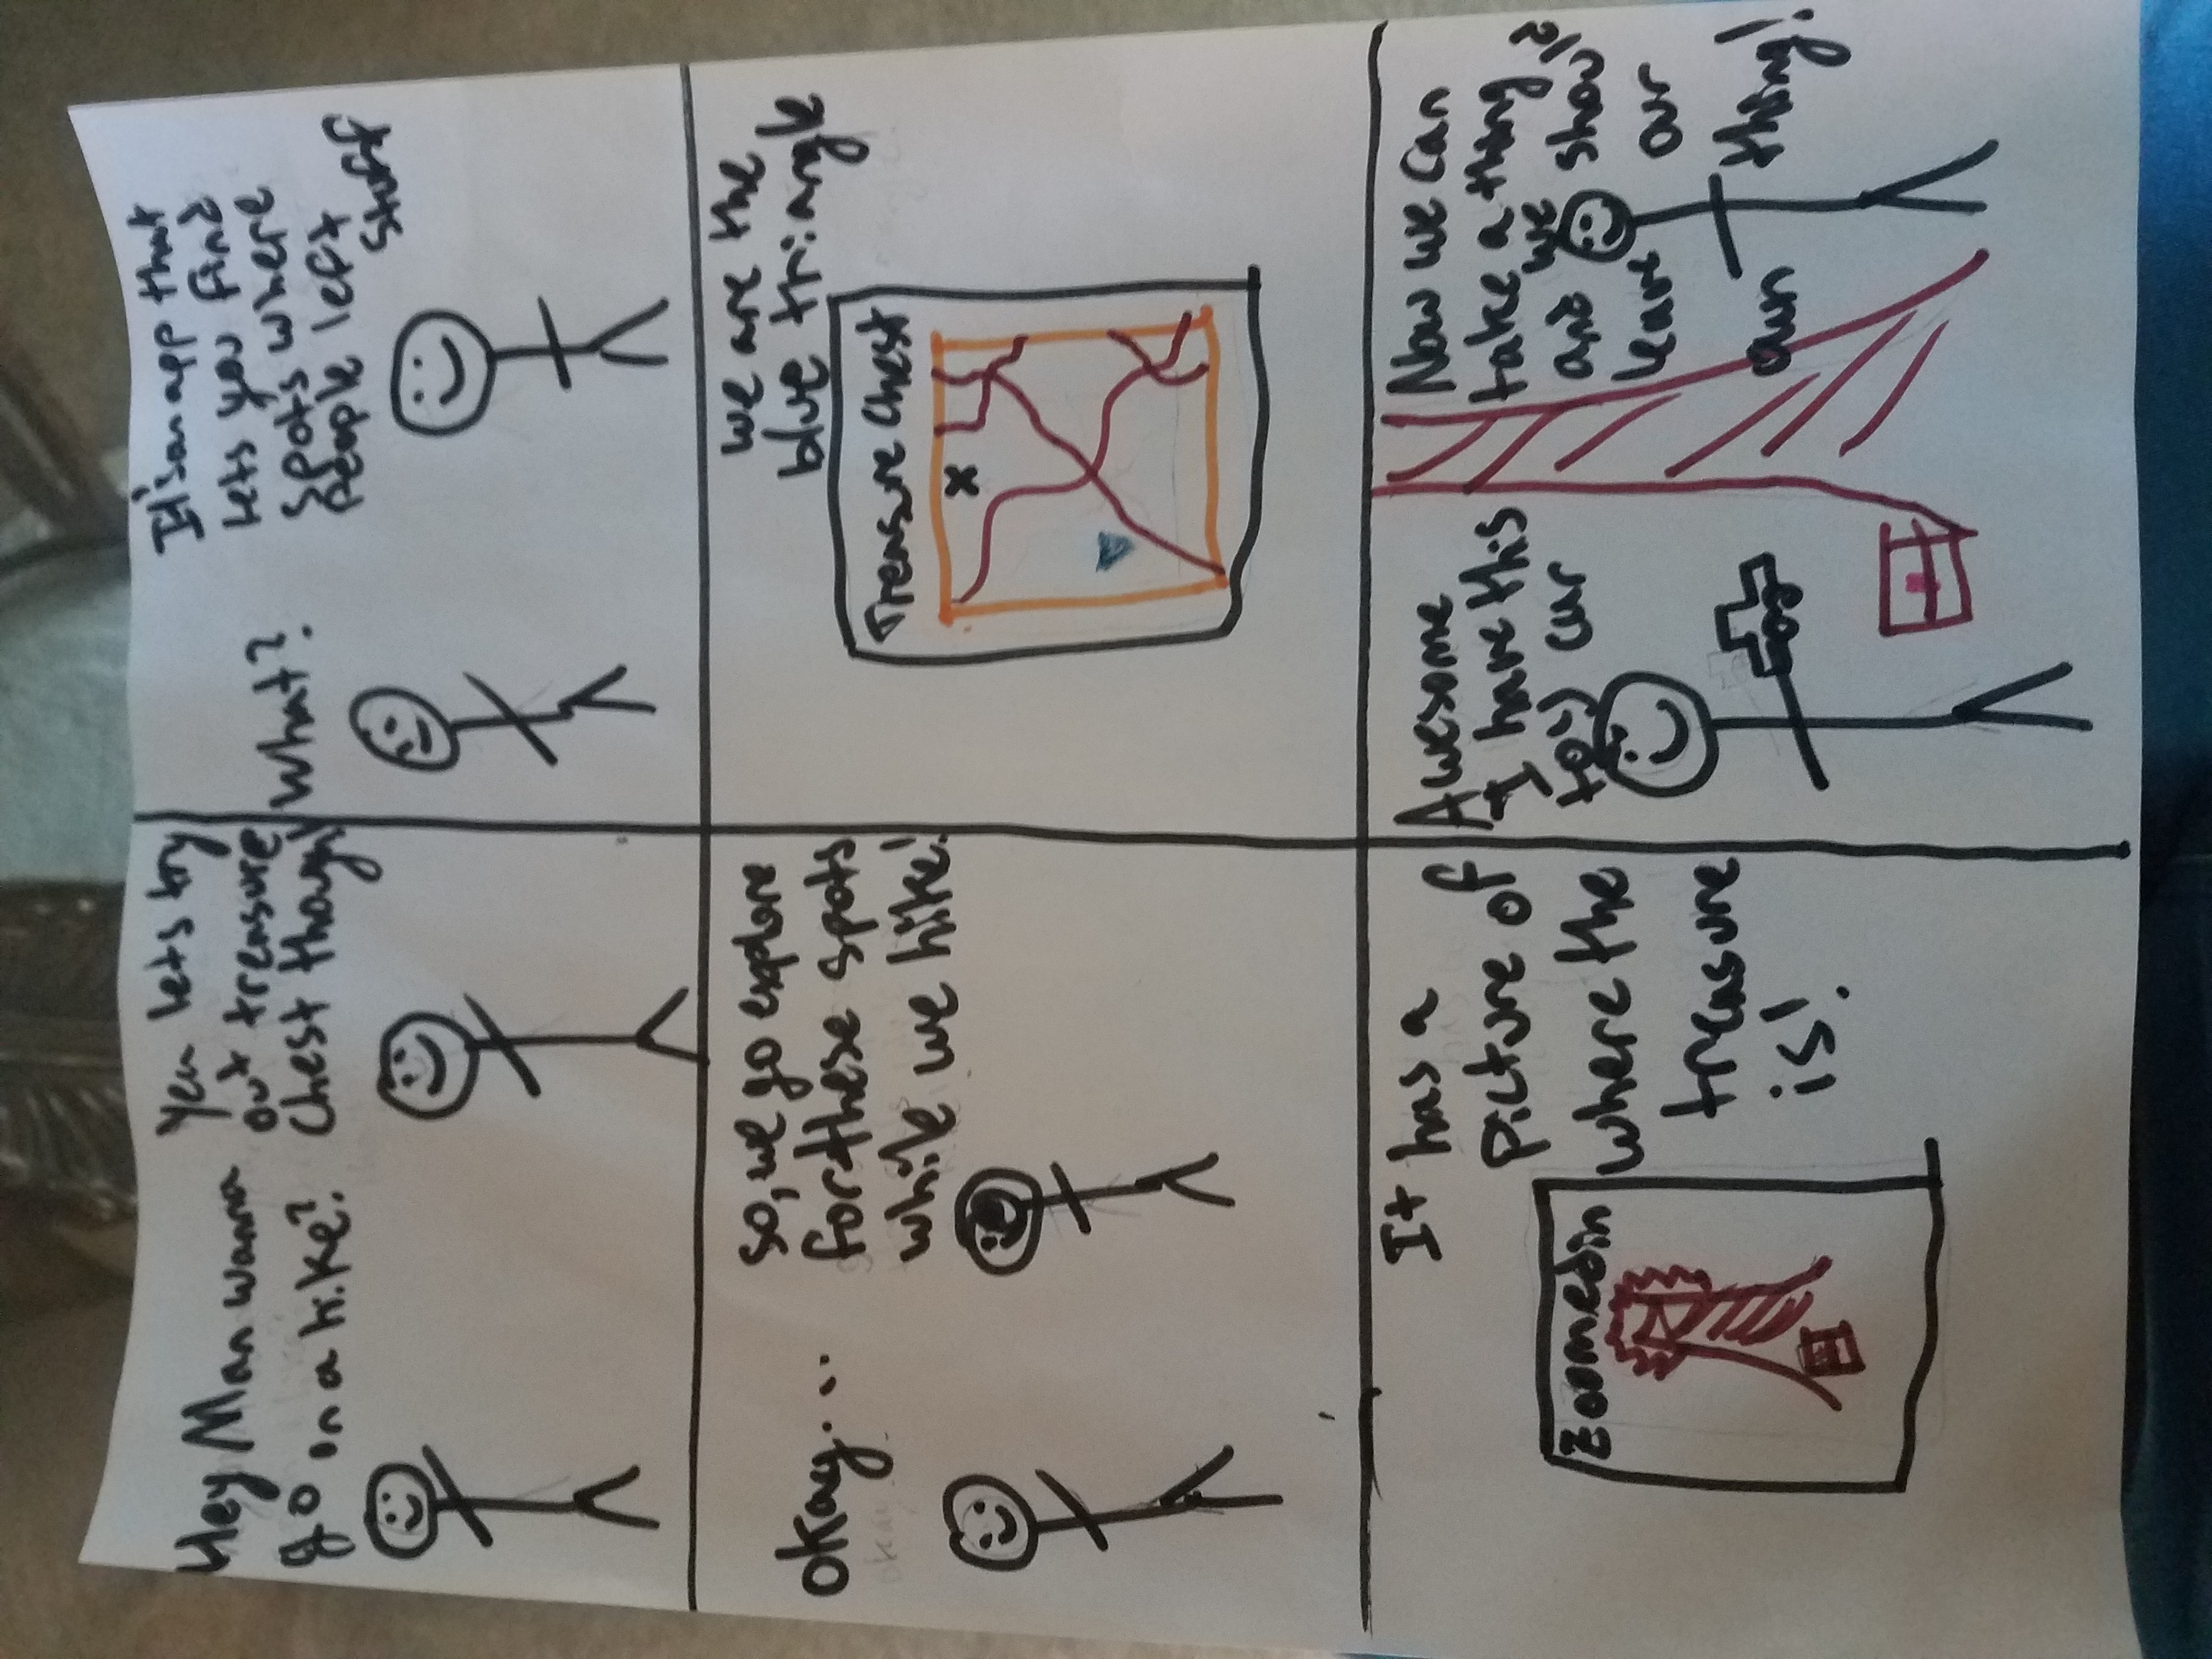 Hey Man wanna
go on a hike?
yea lets try
out treasure
chest though
What?
It's an app that
lets you find
spots where
people left
stuff
okay...
so, we go explore
for these spots
while we hike!
we are the
blue triangle
Treasure Chest
X
It has a
picture of
where the
treasure
is!
Zoomed in
Awesome
I have this
toy car
Now we can
take a thing
and we should
leave our
own thing!